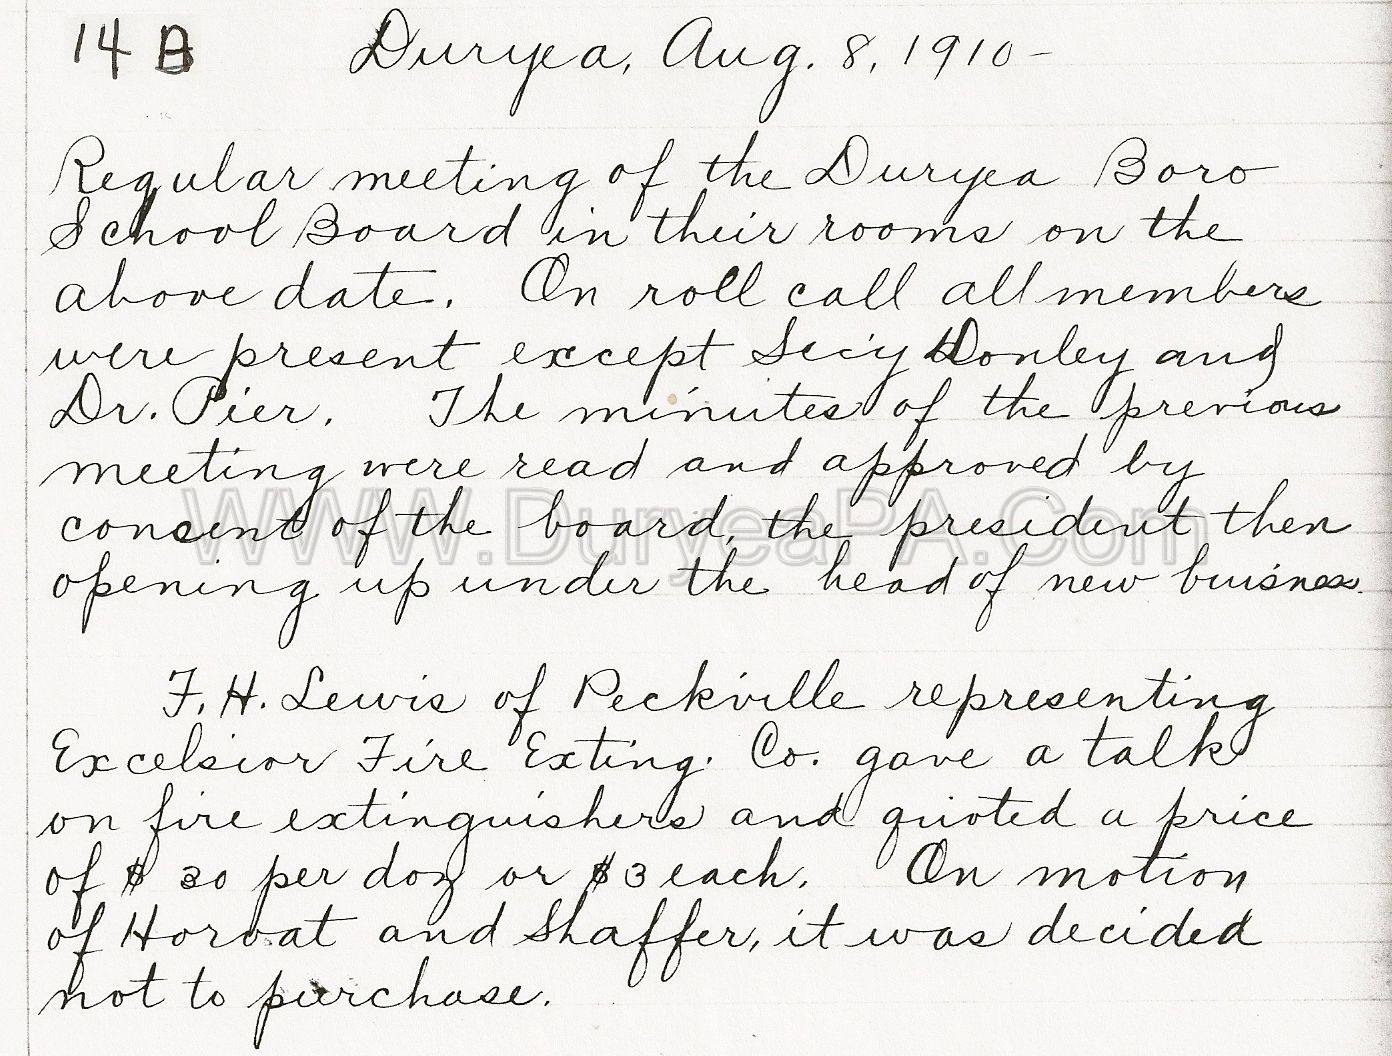 14 B Duryea, Aug. 8, 1910-
Regular meeting of the Duryea Boro
School Board in their rooms on the
above date. On roll call all members
were present except Secy Donley and
Dr. Pier. The minutes of the previous
meeting were read and approved by
consent of the board, the president then
opening up under the head of new buisness.
WWW.DuryeaPA.Com
F. H. Lewis of Peckville representing
Excelsior Fire Exting. Co. gave a talk
on fire extinguishers and quoted a price
of $ 30 per doz or $3 each. On motion
of Horvat and Shaffer, it was decided
not to purchase.